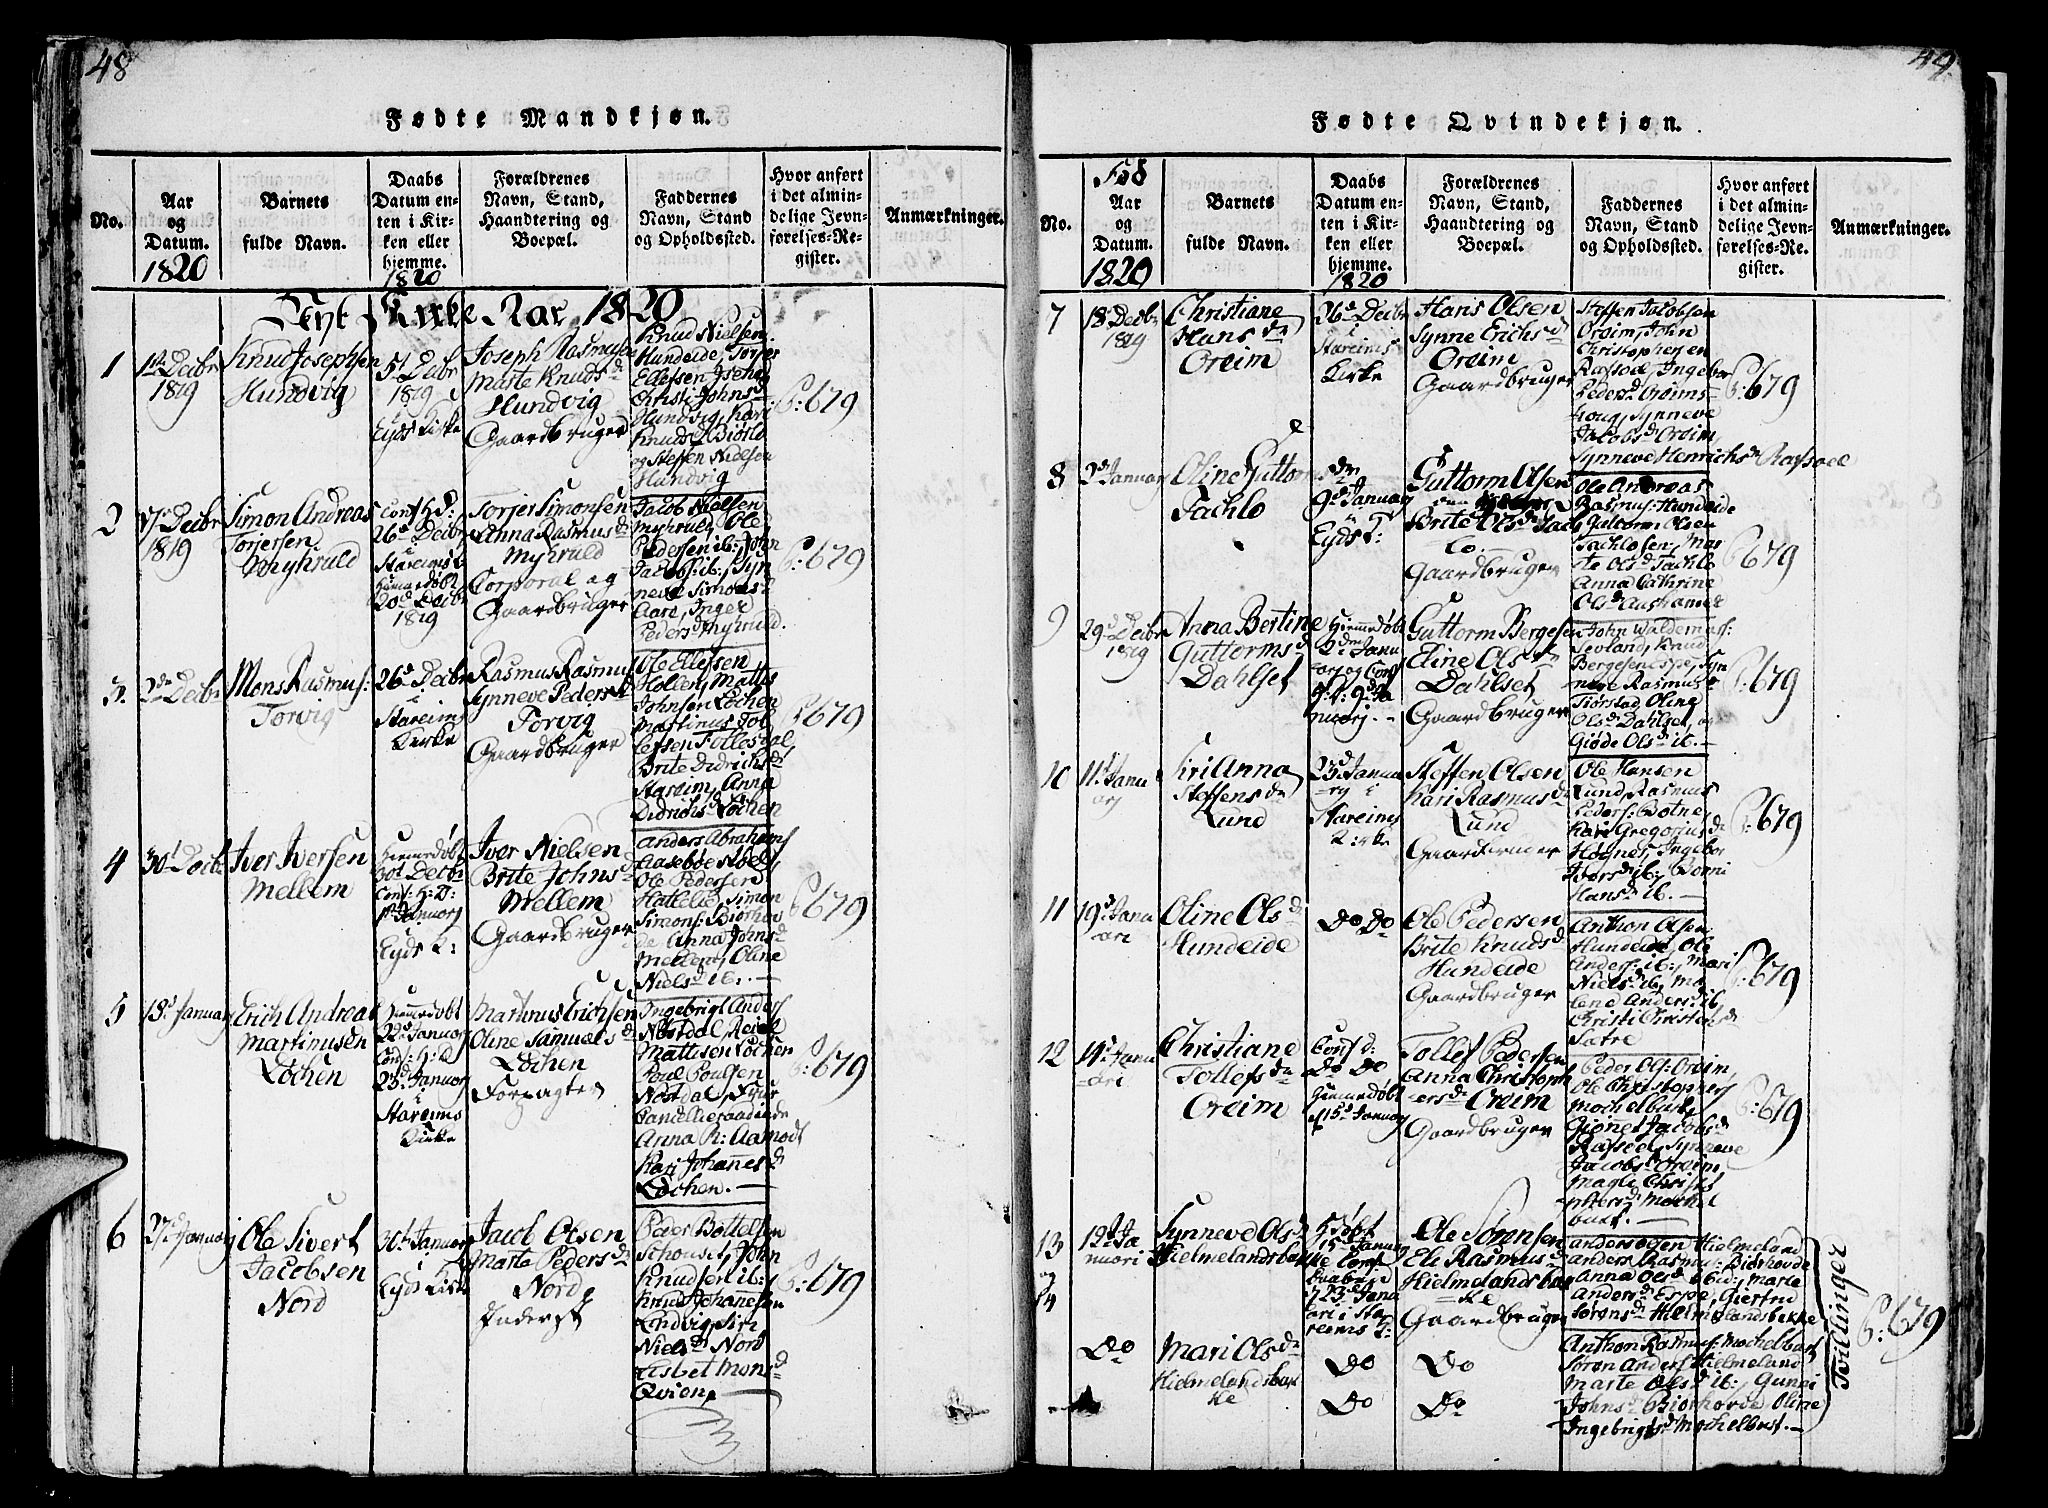 48
Fødte Mandkjøn.
No.
Aar
og
Datum.
1820
Barnets
fulde Navn.
Daabs
Datum en-
ten i Kir-
ken eller
hjemme.
1820
Forældrenes
Navn, Stand,
Haandtering og
Boepæl.
Faddernes
Navn, Stand
og Opholdssted.
Hvor anført
i det almin-
delige Jevn-
førelses-Re-
gister.
Anmærkninger.
Nyt Kirke Aar 1820
1
1ste Decbr
1819
Knud Josephsen
Hundvig
5t Decbr
1819 i
Eyds Kirke
Joseph Rasmuse
Marte Knudsd
Hundvig
Gaardbruger
Knud Nielsen
Hundeide, Torjer
Ellefsen
Christi Johnsd
Hundvig, Kari
Knudsd
og Steffen Nielsen
Hundvig
P:679
2
1819
Simon Andreas
Torjersen
Myhruld
Conf H d:
26d Decbr
i
Stareims K
Hiemmedøbt
20d Decbr
1819
Torjer Simonsen
Anna Rasmusd
Myhruld
Corporal og
Gaardbruger
Jacob Nielsen
Myhruld, Ole
Pedersen ib:, John
Jacobs: ib:, Syn
neve Simonsd
Aare, Inger
Pedersd Myhruld.
P:679
3
Decbr
Mons Rasmus:
Torvig
26d Decbr
i
Stareim
Kirke
Rasmus Rasmus
Synneve Pedersd
Torvig
Gaardbruger
Ole Ellefsen
Hollen, Mattis
Johnsen Lochen
Martinus Tol
lefsen Tollestal,
Brite Didrichsd
Stareim, Anna
Didrichsd Lochen
P679
4
30t Decbr
Iver Iversen
Mellem
Hiemmedøbt
30t Decbr
Conf: H: D:
1ste Januarj
Eyds K:
Iver Nielsen
Brite Johnsd
Mellem
Gaardbruger
Anders Abrahams
Aasebøe
Ole Pedersen
Hatlelid, Simon
Simons: Biørhov
de Anna Johnsd
Mellem, Oline
Nielsd ib. —
P679
5
18d Januarj
Erich Andreas
Martinusen
Lochen
Hiemmedøbt
22d Januarj
Conf: H: D
23d Januarj
i
Stareims
Kirke
Martinus Erichsen
Oline Samuelsd
Lochen
Forpagter
Ingebrigt Anders
Nosdal,
Mattisen Lochen
Poul Poulsen
Nosdal,
Anna R: Aamodt
Kari Johannesd
Lochen. —
P:679
6
27d Januarj
Ole Sivert
Jacobsen
Nord
30t Januarj
i
Eyds Kirke
Jacob Olsen
Marte Pedersd
Nord
Inderst
Peder Bottelsen
Schouset, John
Knudsen ib:
Knud Johannesen
Lindvig, Siri
Nielsd Nord
Lisbet Monsd
Qvien,
P:679
49
Fødte Qvindekjøn.
No.
Fød
Aar
og
Datum.
1820
Barnets
fulde Navn.
Daabs
Datum en-
ten i Kir-
ken eller
hjemme.
1820
Forældrenes
Navn, Stand,
Haandtering og
Boepæl.
Faddernes
Navn, Stand
og Opholdssted.
Hvor anført
i det almin-
delige Jevn-
førelses-Re-
gister.
Anmærkninger.
7
18d Decbr
1819
Christiane
Hansdr
Oreim
26d Decbr
i
Stareims
Kirke
Hans Olsen
Synne Erichsd
Oreim
Gaardbruger
Steffen Jacobsen
Oreim, John
Christophersen
Rafsde, Ingebor
Pedersd
houg, Synneve
Jacobsd Oreim,
Synneve Henrichsd Rafsdel
P:679
8
2d Januarj
Oline Guttorms
Tachlo
9d Januarj
i
Eyds K:
Guttorm Olsen
Brite Olsd Tach
lo
Gaardbruger
Ole Andreas
Rasmus: Hundeide
Guttorm Olsen
Tachlo, Mar
te Olsd Tachlo
Anna Cathrine
Olsd
P679
9
29d Decbr
1819
Anna Bertine
Guttormsd
Dahlset
Hiemmedøbt
2d Janu
arj og Conf
9d Ja
nuarj. -
Guttorm Bergesen
Eline Olsdr
Dahlset
Gaardbruger
John Waldemar:
Sevland, Knud
Bergesen Espe, Syn
neve Rasmusd
Oline
Olsd Dahlset, og
Giøde Olsd ib. —
P:679
10
11t Janu
arj
Siri Anna
Steffensdr
Lund
23d Janua
rj i
Stareims
Kirke
Steffen Olsen
Kari Rasmusdr
Lund
Gaardbruger
Ole Hansen
Lund, Rasmus
Peders: Botne
Kari Gregoriusdr
Høgnes, Ingebor
Iversd ib: Borni
Hansd ib. —
P:679
11
19d Janu
ari
Oline Olsdr
Hundeide
Do Do
Ole Pedersen
Brite Knudsd
Hundeide
Gaardbruger
Anthon Olsen
Hundeide, Ole
Anders: ib:, Mari
Nielsd ib, Ma
lene Andersd ib,
Christi Christensdr
Satre
P:679
12
14d Janu
ari
Christiane
Tollefsdr
Oreim
Conf d:
Do Do
Hiemmedøbt
15d Januarj
Tollef Pedersen
Anna Christoph
ersdr Oreim
Gaardbruger
Peder Ols: Oreim,
Ole Christophers
Mochelbust,
Jacobsd
Rafsdel, Synneve
Jacobsd Oreim,
Magli Christ
ophersd Mochel
bust. —
P:679
13
12d Ja
nuari
Synneve Olsd
Hielmelandsbak
Døbt
15d Januarj
23d Janu
ari i Sta
reims K:
Ole Sørensen
Eli Rasmusd
Hielmelandsba
ke
Gaardbruger
Anders Hielmeland
Anders Rasmus: Biørhovde
Anna Olsd ibid:, Marte
Andersd Espe, Giertrud
Sørensd Hielmelandsbakke
14
Do
Mari Olsdr
Hielmelandsbak
ke
Do
Do
Do
Do
Anthon Rasmus: Mochelbust
Søren Anders Hielmeland
Marte Olsd ib:, Guni
Johnsd Biørhovde Oline
Ingebrigtsd Mochelbust. —
Tvillinger
P:679